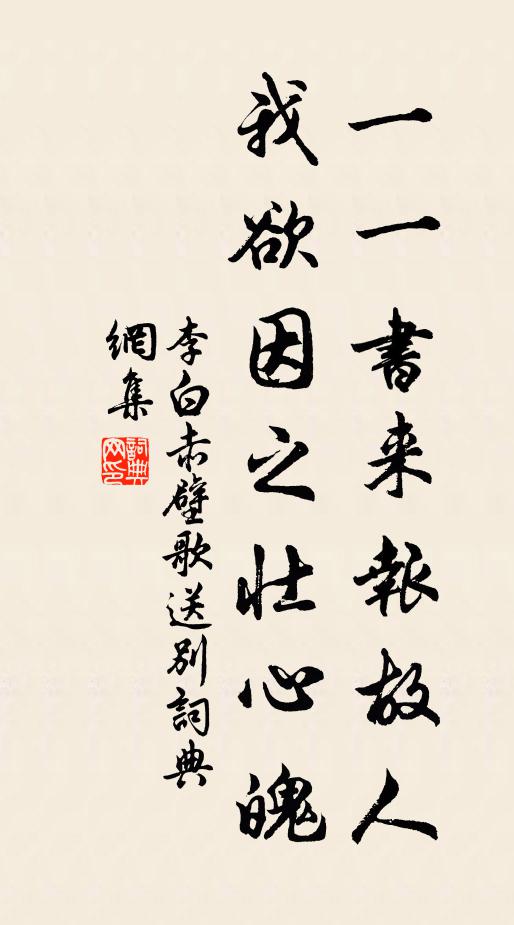 一一書来報故人
我欲因之壯心魄
李白赤壁歌送別詞典
網集
詞典網印